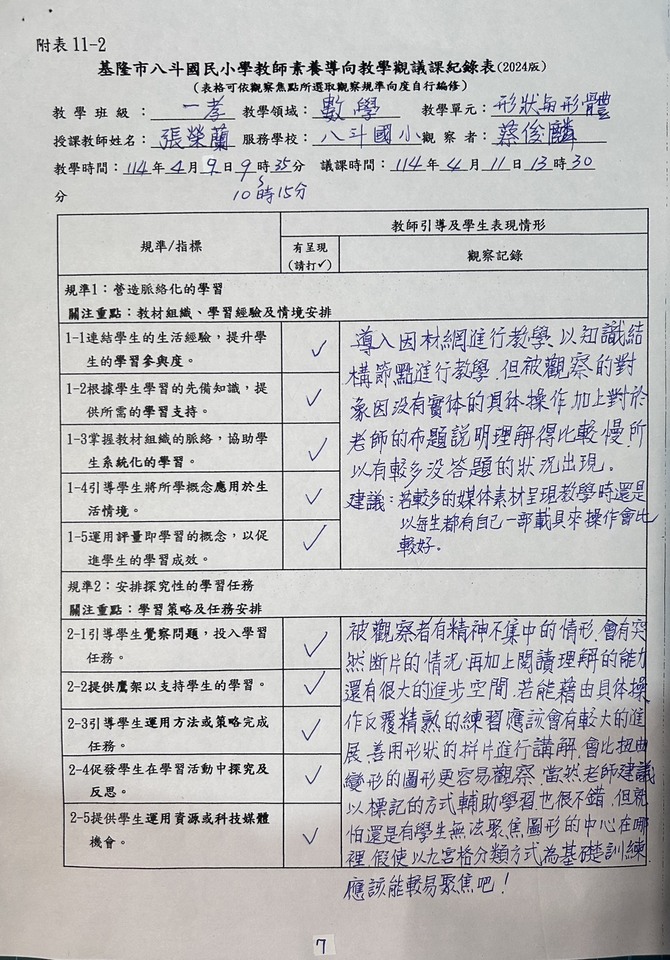 附表 11-2
基隆市八斗國民小學教師素養導向教學觀議課紀錄表(2024版)
(表格可依觀察焦點所選取觀察規準向度自行編修)
教學班級：一孝 教學領域：數學 教學單元：形狀與形體
授課教師姓名：張榮蘭 服務學校：八斗國小 觀察者：蔡俊麟
教學時間：114年4月9日9時35分 議課時間：114年4月11日13時30
分
10時15分
規準/指標
教師引導及學生表現情形
有呈現
(請打✓)
觀察記錄
規準1：營造脈絡化的學習
關注重點：教材組織、學習經驗及情境安排
1-1連結學生的生活經驗，提升學
生的學習參與度。
✓
1-2根據學生學習的先備知識，提
供所需的學習支持。
✓
1-3掌握教材組織的脈絡，協助學
生系統化的學習。
✓
1-4引導學生將所學概念應用於生
活情境。
✓
1-5運用評量即學習的概念，以促
進學生的學習成效。
✓
導入因材網進行教學、以知識結
構節點進行教學.但被觀察的對
象因沒有實体的具体操作加上對於
老師的布題說明理解得比較慢.所
以有較多沒答題的狀況出現。
建議：若較多的媒体素材呈現教學時還是
以每生都有自己一部載具來操作會比
較好。
規準2：安排探究性的學習任務
關注重點：學習策略及任務安排
2-1引導學生覺察問題，投入學習
任務。
✓
2-2提供鷹架以支持學生的學習。
✓
2-3引導學生運用方法或策略完成
任務。
✓
2-4促發學生在學習活動中探究及
反思。
✓
2-5提供學生運用資源或科技媒體
機會。
✓
被觀察者有精神不集中的情形.會有突
然断片的情況.再加上閱讀理解的能力
還有很大的進步空間.若能藉由具体操
作反覆精熟的練習應該會有較大的進
展.善用形狀的拼片進行講解.會比扭曲
變形的圖形更容易觀察.當然老師建議
以標記的方式輔助學習也很不錯.但就
怕還是有學生無法聚焦圖形的中心在哪
裡.假使以九宮格分類方式為基礎訓練
應該能較易聚焦吧！
7